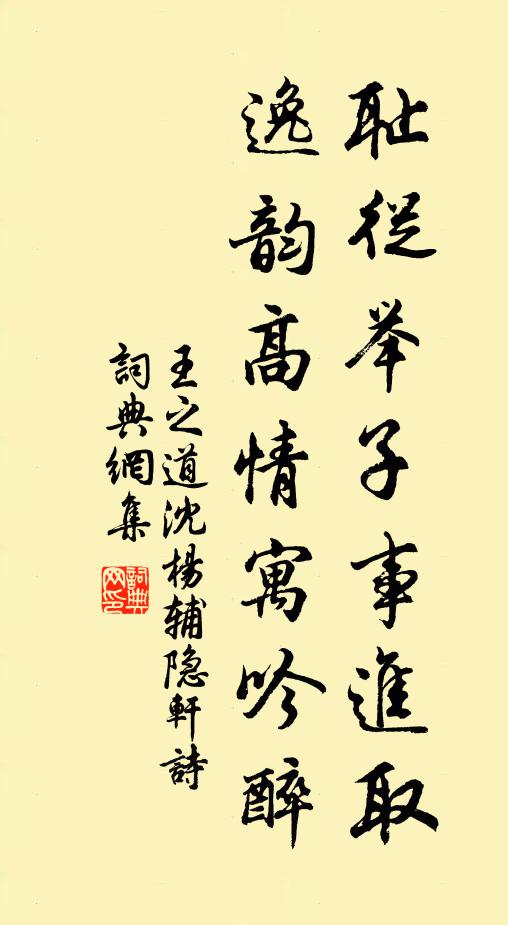 耻從举子事進取
逸韵高情寓吟醉
王之道沈楊辅隐軒詩
詞典網集
詞典
网印